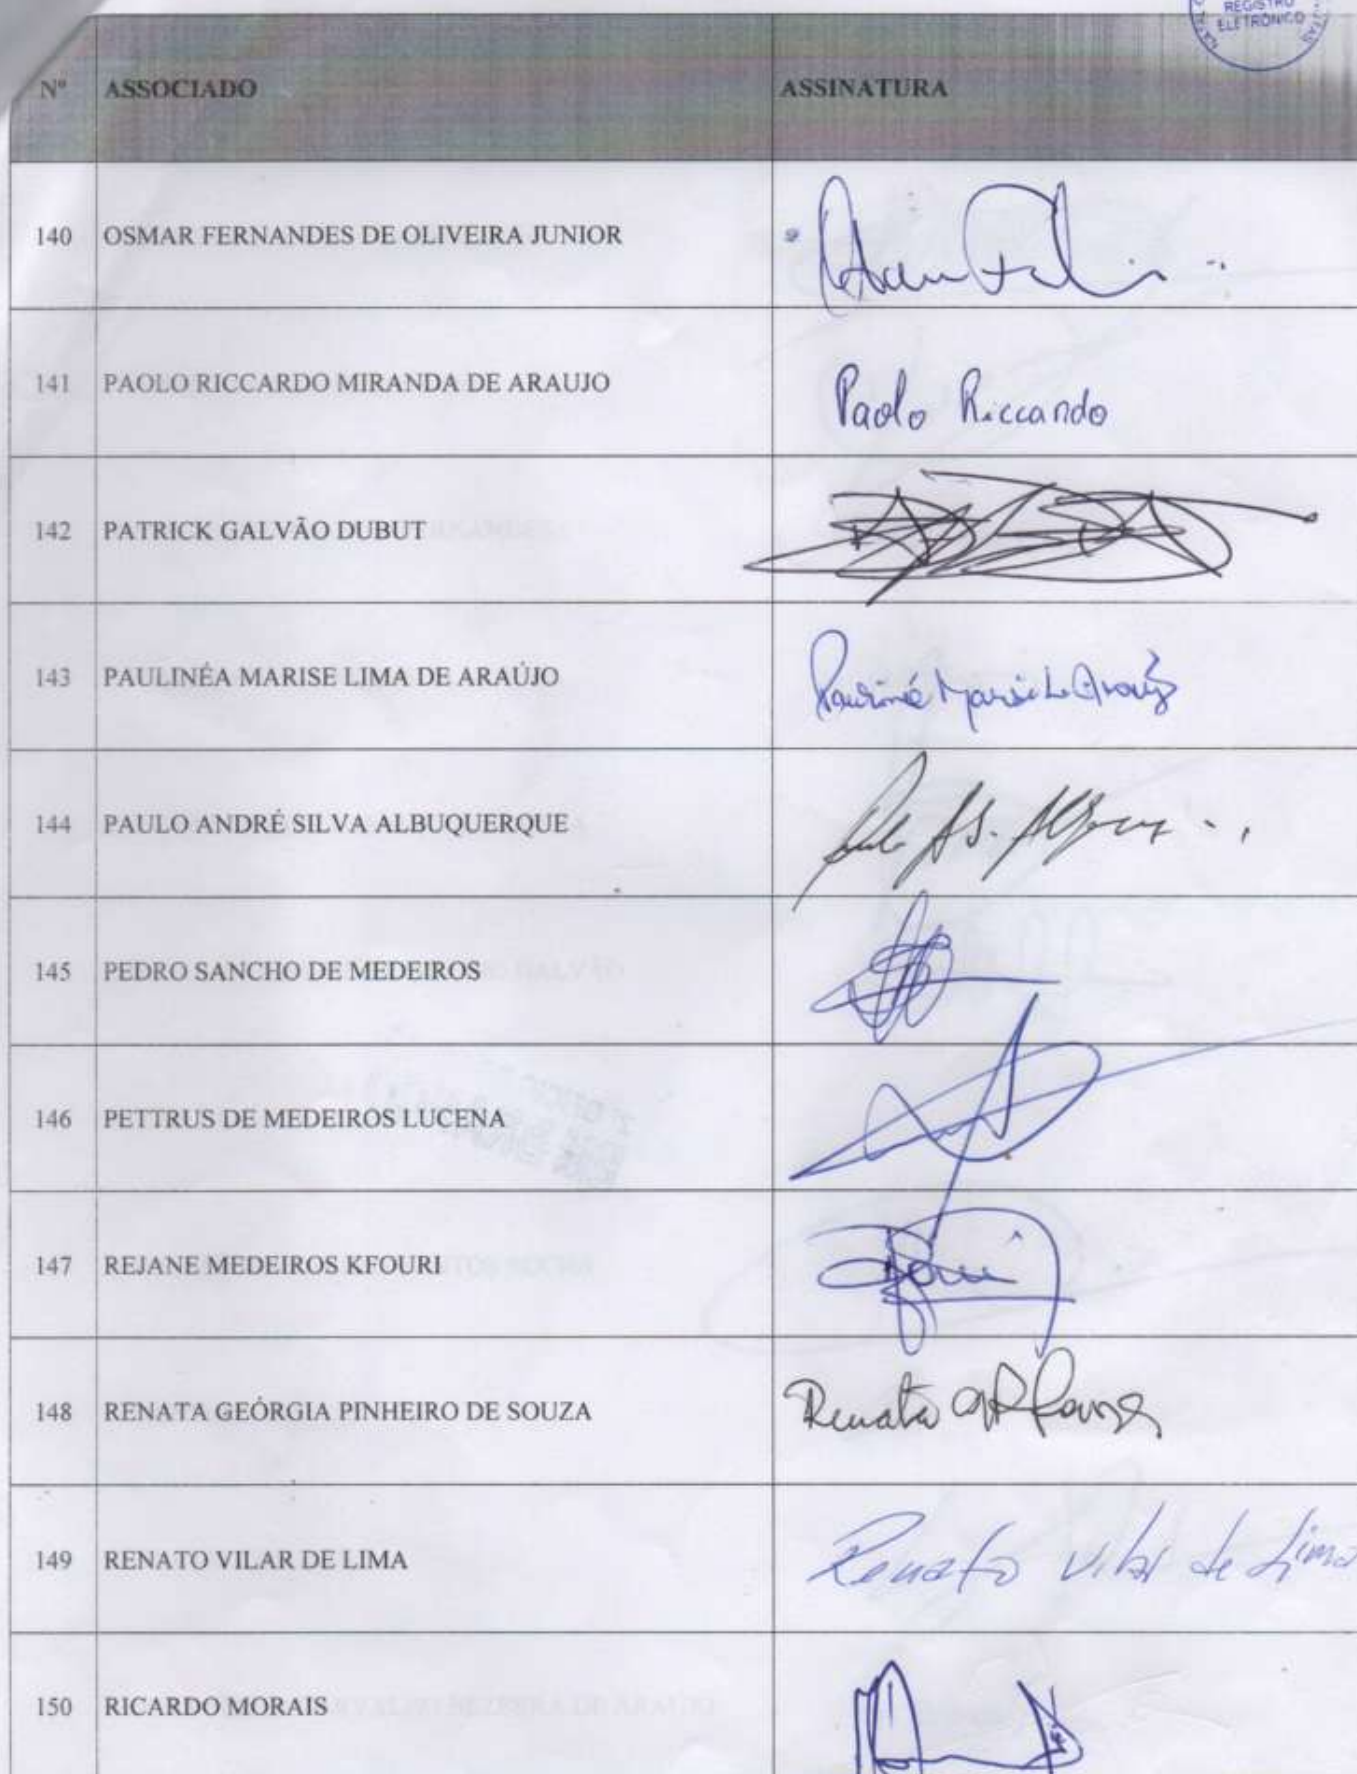 REGISTRO
ELETRÔNICO
Nº ASSOCIADO ASSINATURA
140 OSMAR FERNANDES DE OLIVEIRA JUNIOR
141 PAOLO RICCARDO MIRANDA DE ARAUJO Paolo Riccardo
142 PATRICK GALVÃO DUBUT
143 PAULINÉA MARISE LIMA DE ARAÚJO
144 PAULO ANDRÉ SILVA ALBUQUERQUE
145 PEDRO SANCHO DE MEDEIROS
146 PETTRUS DE MEDEIROS LUCENA
147 REJANE MEDEIROS KFOURI
148 RENATA GEÓRGIA PINHEIRO DE SOUZA Renata
149 RENATO VILAR DE LIMA Renato Vilar de Lima
150 RICARDO MORAIS